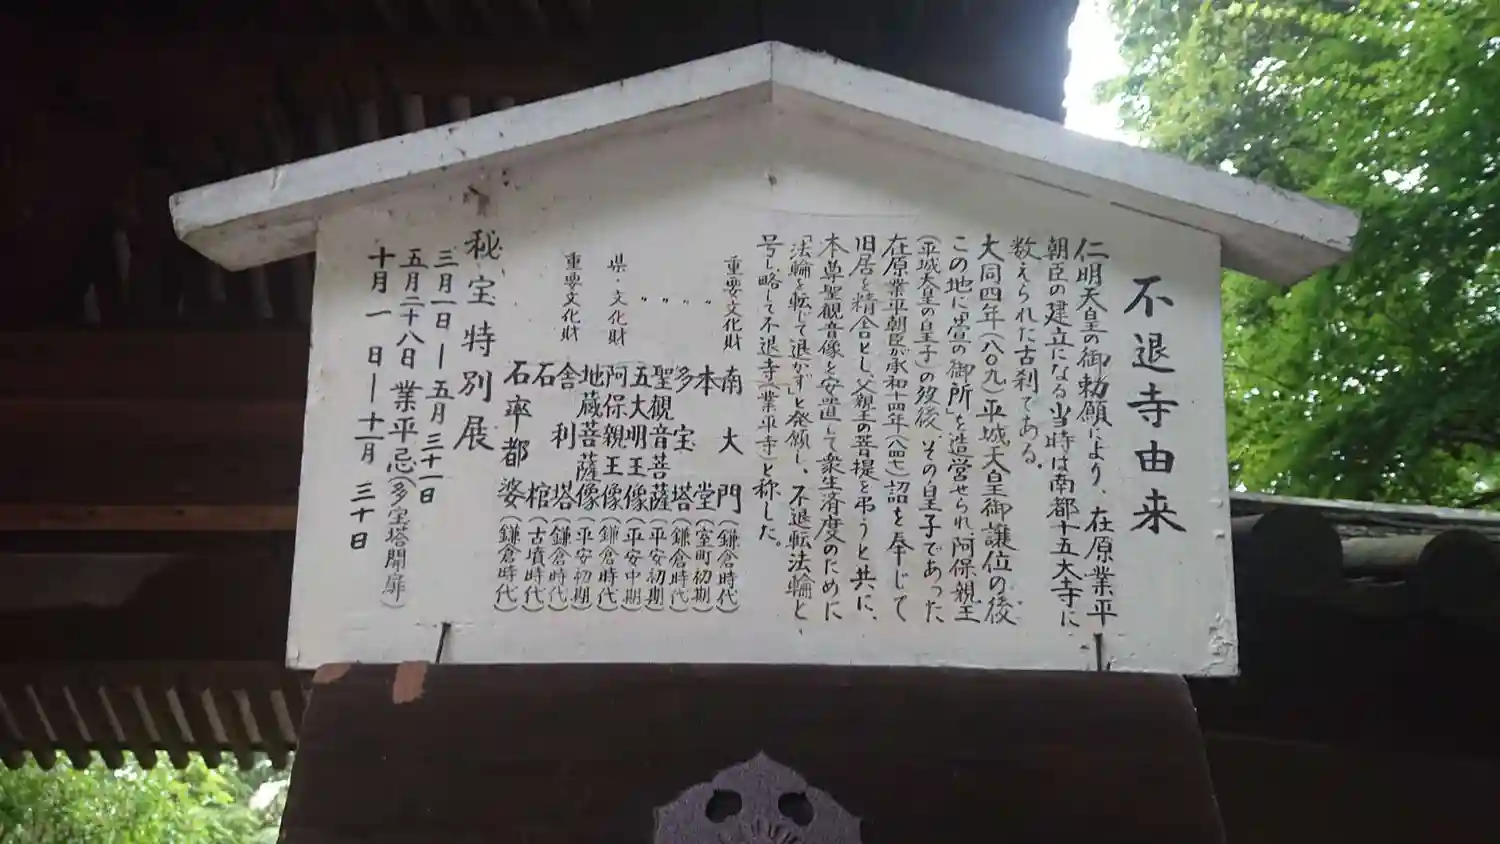 不退寺由来
仁明天皇の御勅願により、在原業平
朝臣の建立になる当時は南都十五大寺に
数えられた古刹である。
大同四年(八〇九)平城天皇御譲位の後
この地に「萱の御所」を造営せられ、阿保親王
(平城天皇の皇子)の後後、その皇子であった
在原業平朝臣が承和十四年(八四七)詔を奉じて
旧居を精舎とし、父親王の菩提を弔うと共に、
本尊聖観音像を安置して衆生済度のために
「法輪を転じて退かず」と発願し、不退転法輪と、
号し略して不退寺(業平寺)と称した。
重要文化財 南大門(鎌倉時代)
〃 本堂(室町初期)
〃 多宝塔(鎌倉時代)
〃 聖観音菩薩(平安初期)
〃 五大明王像(平安中期)
県・文化財 阿保親王像(鎌倉時代)
地蔵菩薩像(平安初期)
重要文化財 舎利塔(鎌倉時代)
石棺(古墳時代)
石率都婆(鎌倉時代)
秘宝特別展
三月一日ー五月三十一日
五月二十八日業平忌(多宝塔開扉)
十月一日ー十一月三十日